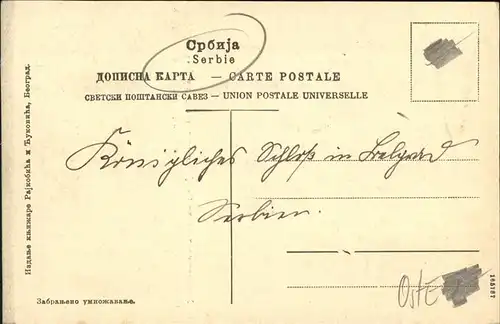 Србија
Serbie
ДОПИСНА КАРТА — CARTE POSTALE
СВЕТСКИ ПОШТАНСКИ САВЕЗ — UNION POSTALE UNIVERSELLE
Königliches Schloß in Belgrad
Serbien.
Издање књижаре Рајковића и Ћуковића, Београд.
Забрањено умножавање.
OstE